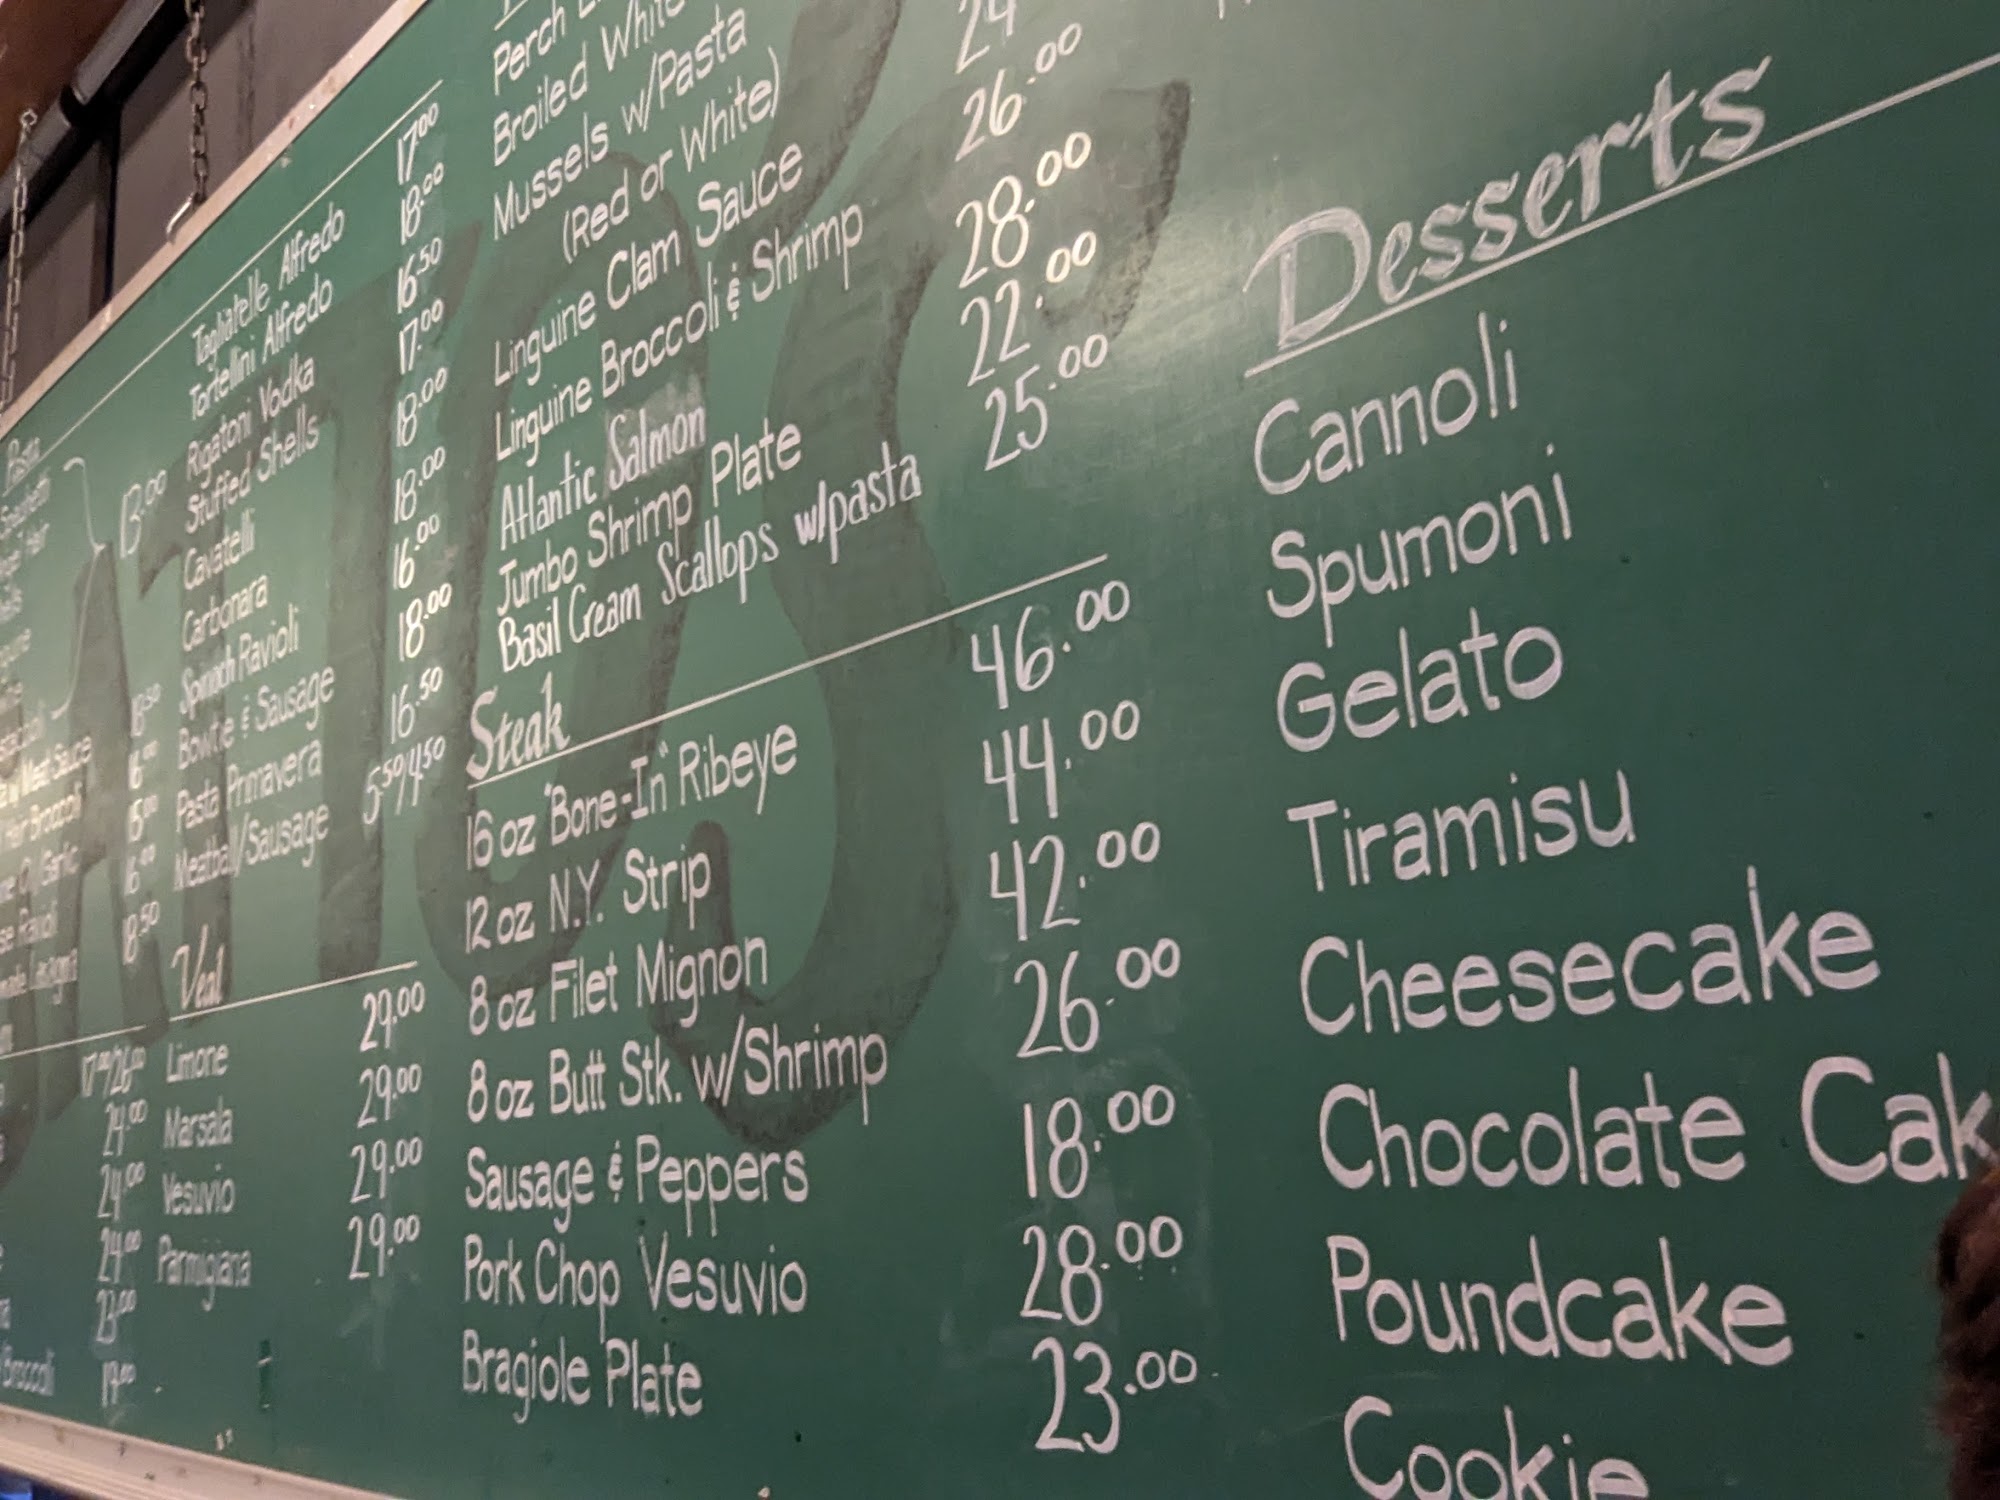 Pasta
13.00
Meat Sauce
Hair Broccoli
Garlic
Ravioli
18.50
16.00
15.00
16.00
18.50
17.00/26.00
24.00
24.00
24.00
23.00
Broccoli
19.00
Tagliatelle Alfredo 17.00
Tortellini Alfredo 18.00
Rigatoni Vodka 16.50
Stuffed Shells 17.00
Cavatelli 18.00
Carbonara 18.00
Spinach Ravioli 16.00
Bowtie & Sausage 18.00
Pasta Primavera 16.50
Meatball/Sausage 5.50/4.50
Veal
Limone 29.00
Marsala 29.00
Vesuvio 29.00
Parmigiana 29.00
Perch
Broiled White
Mussels w/Pasta 24
(Red or White)
Linguine Clam Sauce 26.00
Linguine Broccoli & Shrimp 28.00
Atlantic Salmon 28.00
Jumbo Shrimp Plate 22.00
Basil Cream Scallops w/pasta 25.00
Steak
16 oz "Bone-In" Ribeye 46.00
12 oz N.Y. Strip 44.00
8 oz Filet Mignon 42.00
8 oz Butt Stk. w/Shrimp 26.00
Sausage & Peppers 18.00
Pork Chop Vesuvio 28.00
Bragiole Plate 23.00
Desserts
Cannoli
Spumoni
Gelato
Tiramisu
Cheesecake
Chocolate Cak
Poundcake
Cookie